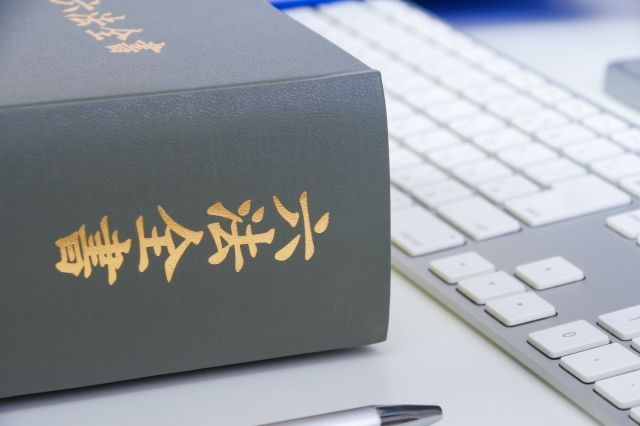 六法全書
六法全書